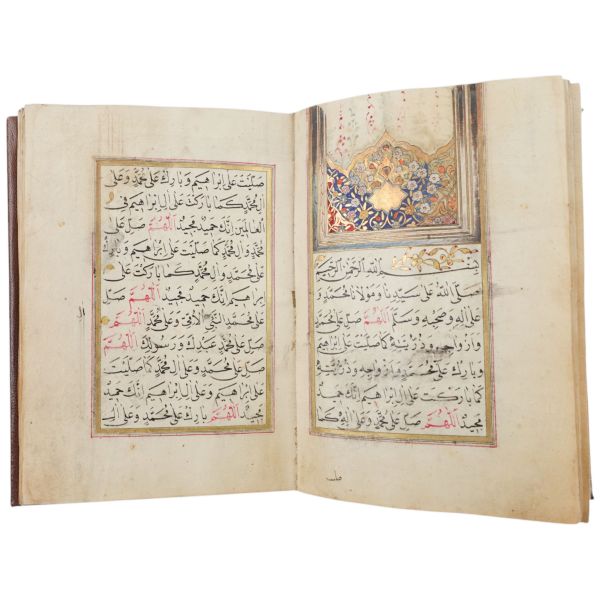 بسم الله الرحمن الرحيم
صلى الله على سيدنا ومولانا محمد و
على اله وصحبه وسلم اللهم صل على محمد
وازواجه وذريته كما صليت على ابراهيم
وبارك على محمد وازواجه وذريته
كما باركت على ال ابراهيم انك حميد
مجيد اللهم صل على محمد وعلى اله كما
صليت
صليت على ابراهيم وبارك على محمد وعلى
ال محمد كما باركت على ال ابراهيم في
العالمين انك حميد مجيد اللهم صل على
محمد وال محمد كما صليت على ابراهيم وبارك
على محمد وال محمد كما باركت على
ابراهيم انك حميد مجيد اللهم صل
على محمد النبي الامي وعلى محمد اللهم
صل على محمد عبدك ورسولك اللهم
صل على محمد وعلى ال محمد كما صليت
على ابراهيم وعلى ال ابراهيم انك حميد
مجيد اللهم بارك على محمد وعلى ال